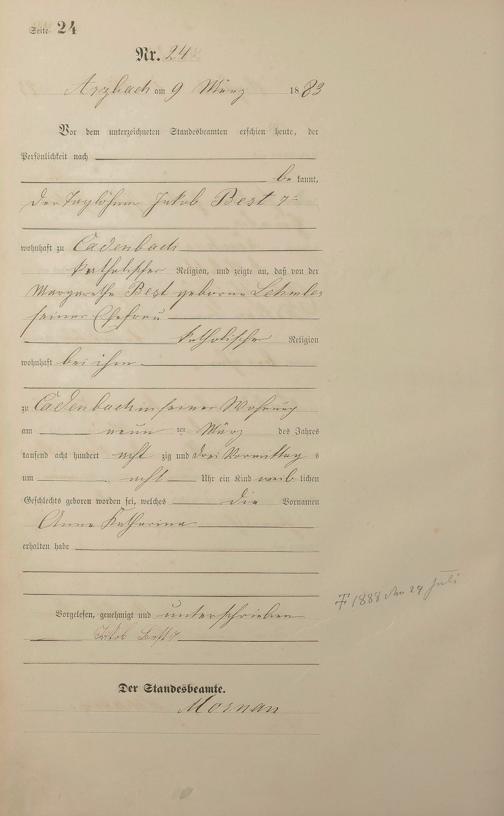 Seite 24
Nr. 24
Arzbach am 9 März 1883
Vor dem unterzeichneten Standesbeamten erschien heute, der
Persönlichkeit nach
be kannt,
der Taglöhner Jakob Best
wohnhaft zu Cadenbach
katholischer Religion, und zeigte an, daß von der
Margarethe Best geborne
seiner Ehefrau
katholische Religion
wohnhaft bei ihm
zu Cadenbach in seiner Wohnung
am neun ten März des Jahres
tausend acht hundert acht zig und drei Vormittag s
um acht Uhr ein Kind weib lichen
Geschlechts geboren worden sei, welches die Vornamen
Anna Katharina
erhalten habe
Vorgelesen, genehmigt und unterschrieben
Jakob Best
Der Standesbeamte.
† 1888 den 24 Juli